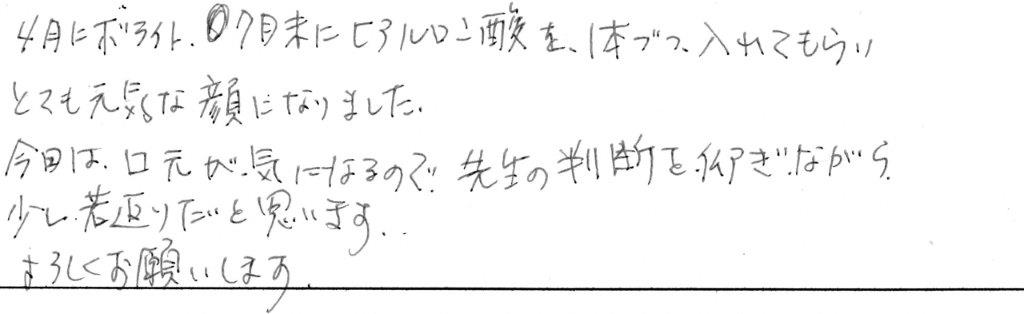 4月にボライト、7月末にヒアルロン酸を、1本づつ、入れてもらい
とても元気な顔になりました。
今回は、口元が気になるので、先生の判断を仰ぎながら、
少し若返りたいと思います。
よろしくお願いします。